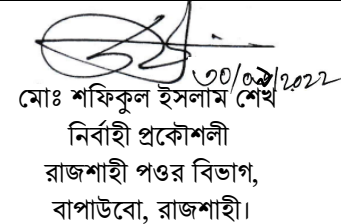 ৩০/০৬/২০২২
মোঃ শফিকুল ইসলাম শেখ
নির্বাহী প্রকৌশলী
রাজশাহী পওর বিভাগ,
বাপাউবো, রাজশাহী।